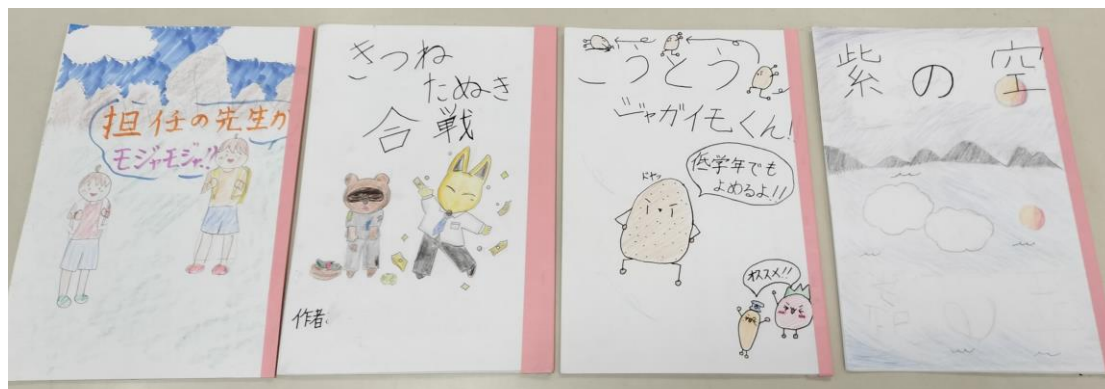 担任の先生が
モジャモジャ!!
きつね
たぬき
合戦
作者.
ごうとう
ジャガイモくん!
低学年でも
よめるよ!!
ドヤッ
オススメ!!
紫の空